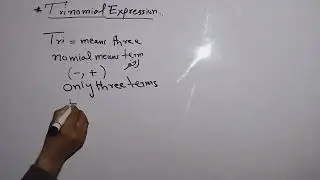 * Trinomial Expression.
Tri = means three
nomial means term
(-, +)
only three terms